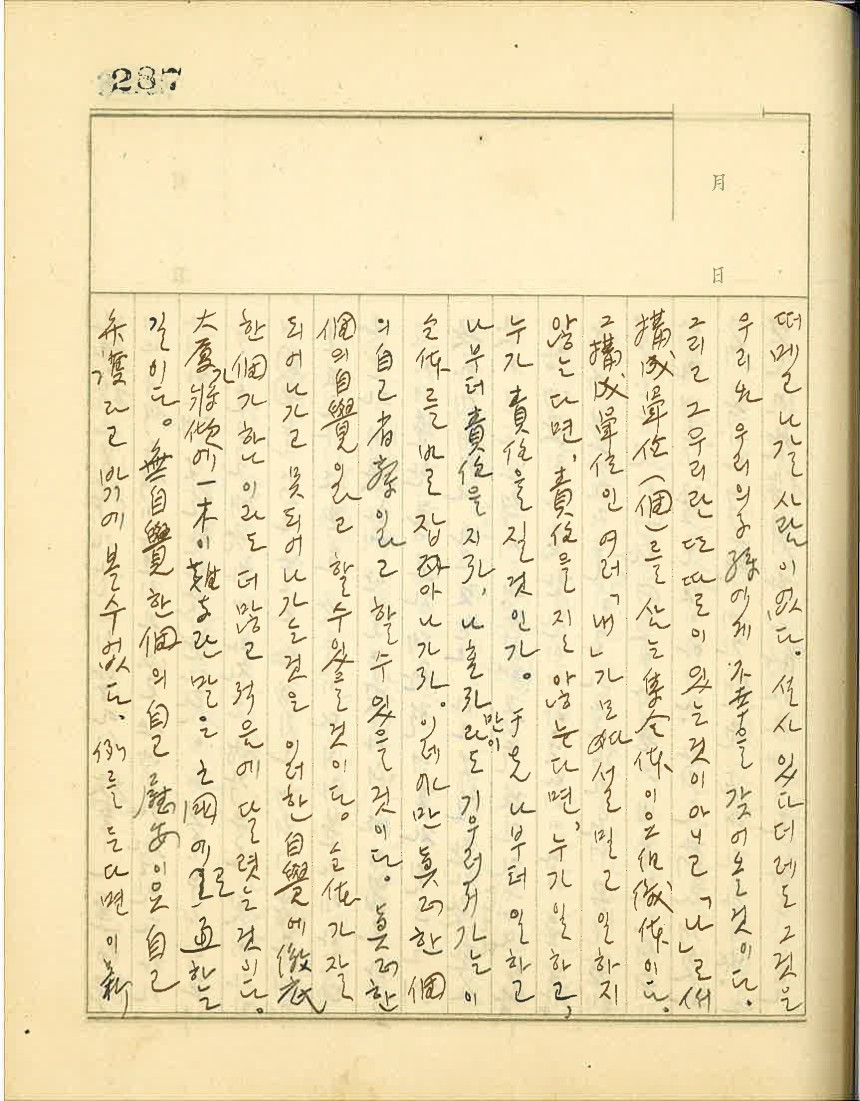 287
月
日
떠메고 나갈 사람이 없다. 설사 있다더레도 그것은
우리난 우리의 子孫에게 不幸을 갖어오는것이다.
그리고 그우리란 또따로이 있는것이 아니고 「나」로써
構成單位(個)를 삼는 集全体이오 組織体이다.
그構成單位인 여러「내」가 모여서 설멸고 일하지
않는다면, 責任을 지는 않는다면, 누가 일하고,
누가 責任을 질것인가. 于先 나부터 일하고
나부터 責任을 지라, 나 홀라만이라도 기우러저가는 이
全体를 바로 잡아 나가라. 이레야만 眞正한 個
의 自己省察이라고 할수 있을것이다. 眞正한
個의 自覺이라고 할수있을것이다. 全体가 잘
되어나가고 못되어나가는것은 이러한 自覺에 徹底
한 個가 하나이라도 더많고 적음에 달렷는것이다.
大廈가 將傾에 一木이 難支란 말은 亡國에로 通하는
길이다. 無自覺한 個의 自己慰安이오 自己
弁護라고 밖에 볼수없다. 例를 든다면 이 新